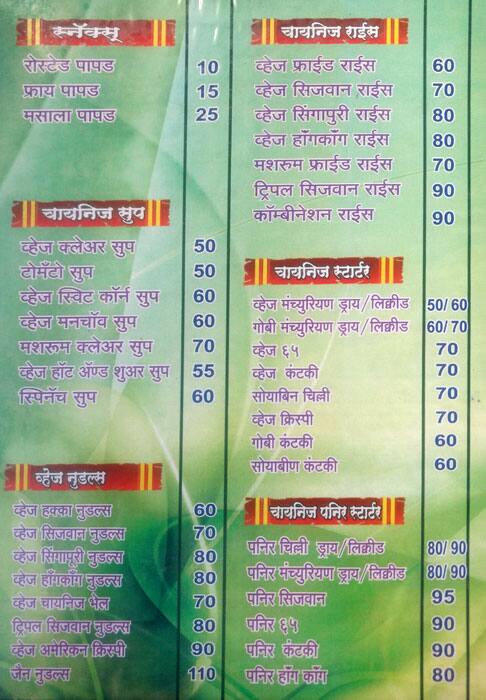 स्नॅक्स्
रोस्टेड पापड 10
फ्राय पापड 15
मसाला पापड 25
चायनिज सुप
व्हेज क्लेअर सुप 50
टोमॅंटो सुप 50
व्हेज स्विट कॉर्न सुप 60
व्हेज मनचॉव सुप 60
मशरूम क्लेअर सुप 70
व्हेज हॉट ॲण्ड शुअर सुप 55
स्पिनॅच सुप 60
व्हेज नुडल्स
व्हेज हक्का नुडल्स 60
व्हेज सिजवान नुडल्स 70
व्हेज सिंगापूरी नुडल्स 80
व्हेज हाँगकाँग नुडल्स 80
व्हेज चायनिज भेल 70
ट्रिपल सिजवान नुडल्स 80
व्हेज अमेरिकन क्रिस्पी 90
जैन नुडल्स 110
चायनिज राईस
व्हेज फ्राईड राईस 60
व्हेज सिजवान राईस 70
व्हेज सिंगापुरी राईस 80
व्हेज हाँगकाँग राईस 80
मशरूम फ्राईड राईस 70
ट्रिपल सिजवान राईस 90
कॉम्बीनेशन राईस 90
चायनिज स्टार्टर
व्हेज मंच्युरियण ड्राय/लिक्रीड 50/60
गोबी मंच्युरियण ड्राय/लिक्रीड 60/70
व्हेज ६५ 70
व्हेज कंटकी 70
सोयाबिन चिल्ली 70
व्हेज क्रिस्पी 70
गोबी कंटकी 60
सोयाबीण कंटकी 60
चायनिज पनिर स्टार्टर
पनिर चिल्ली ड्राय/लिक्रीड 80/90
पनिर मंच्युरियण ड्राय/लिक्रीड 80/90
पनिर सिजवान 95
पनिर ६५ 90
पनिर कंटकी 90
पनिर हाँग काँग 80